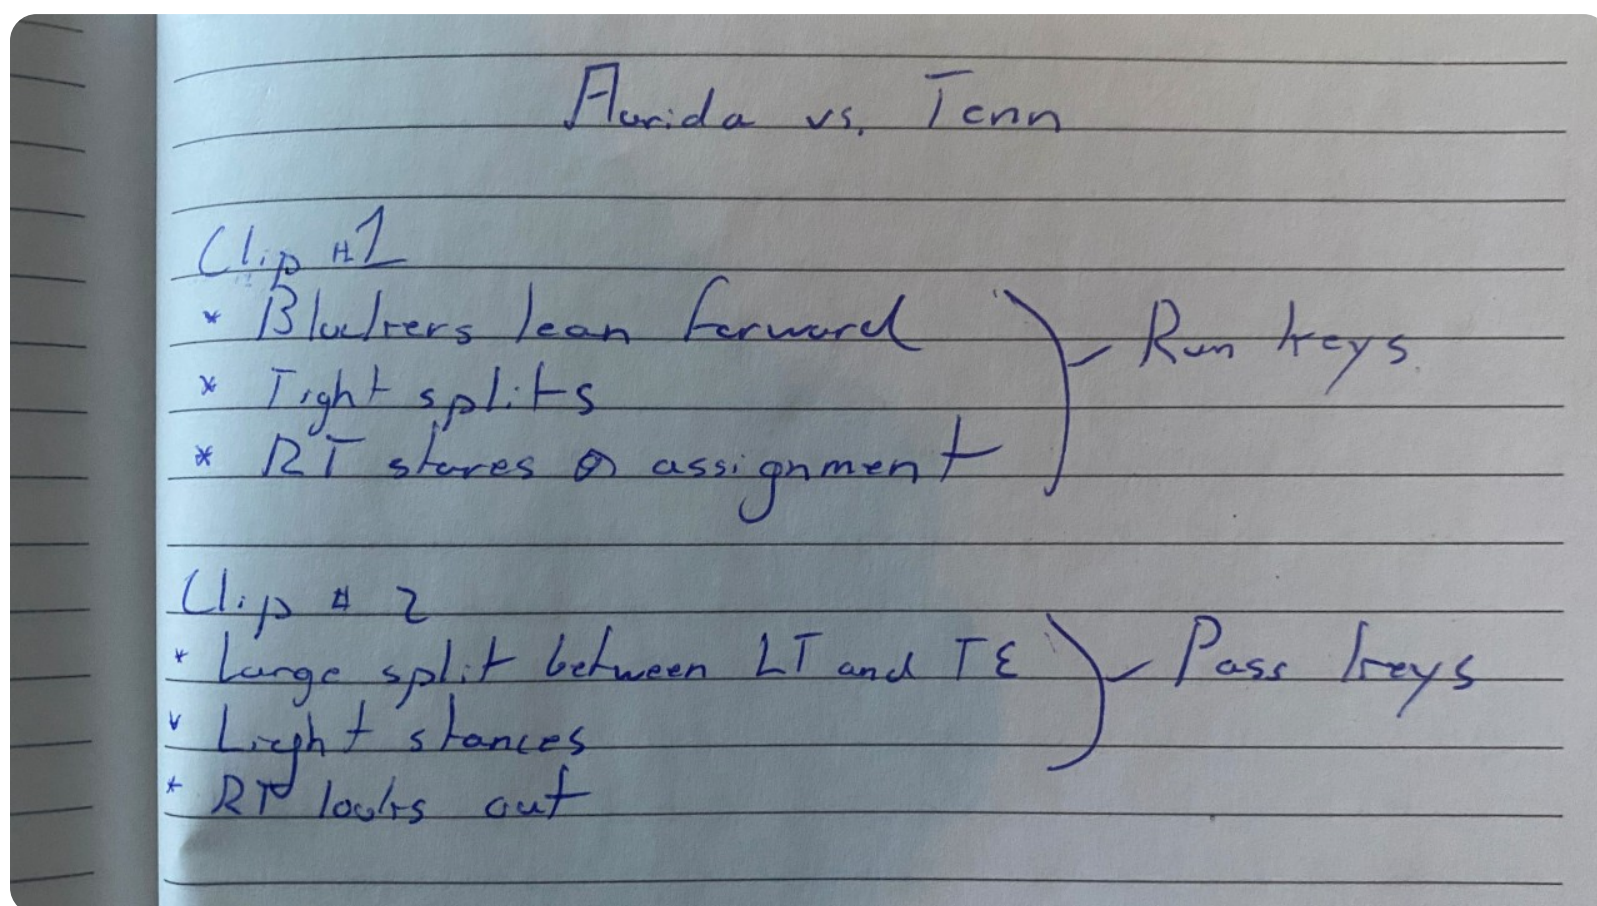 Florida vs. Tenn
Clip #1
* Blockers lean forward
* Tight splits
* RT stares @ assignment
Run keys
Clip # 2
* Large split between LT and TE
* Light stances
* RT looks out
Pass keys